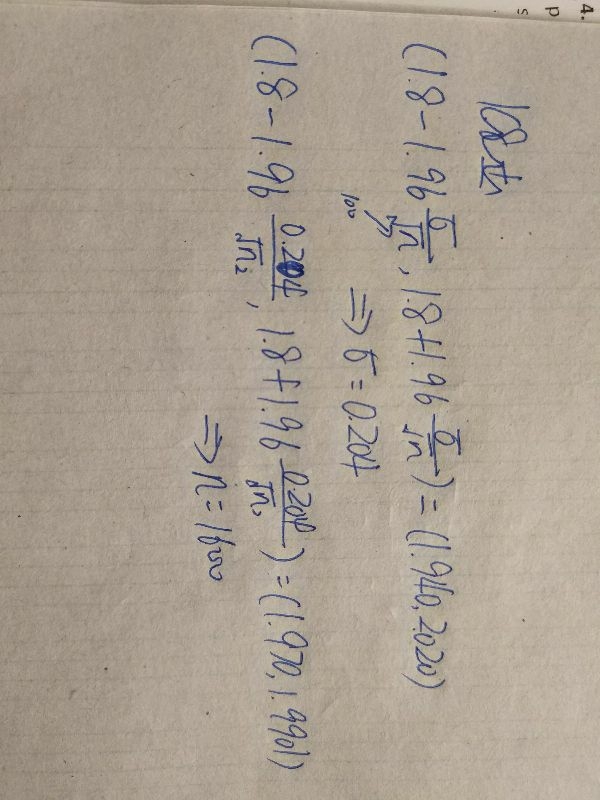 4.
p
s
(1.8 - 1.96 σ/√n, 1.8 + 1.96 σ/√n) = (1.940, 2.020)
100
⇒ σ = 0.204
(1.8 - 1.96 0.204/√n₂, 1.8 + 1.96 0.204/√n₂) = (1.970, 1.990)
⇒ n = 1600